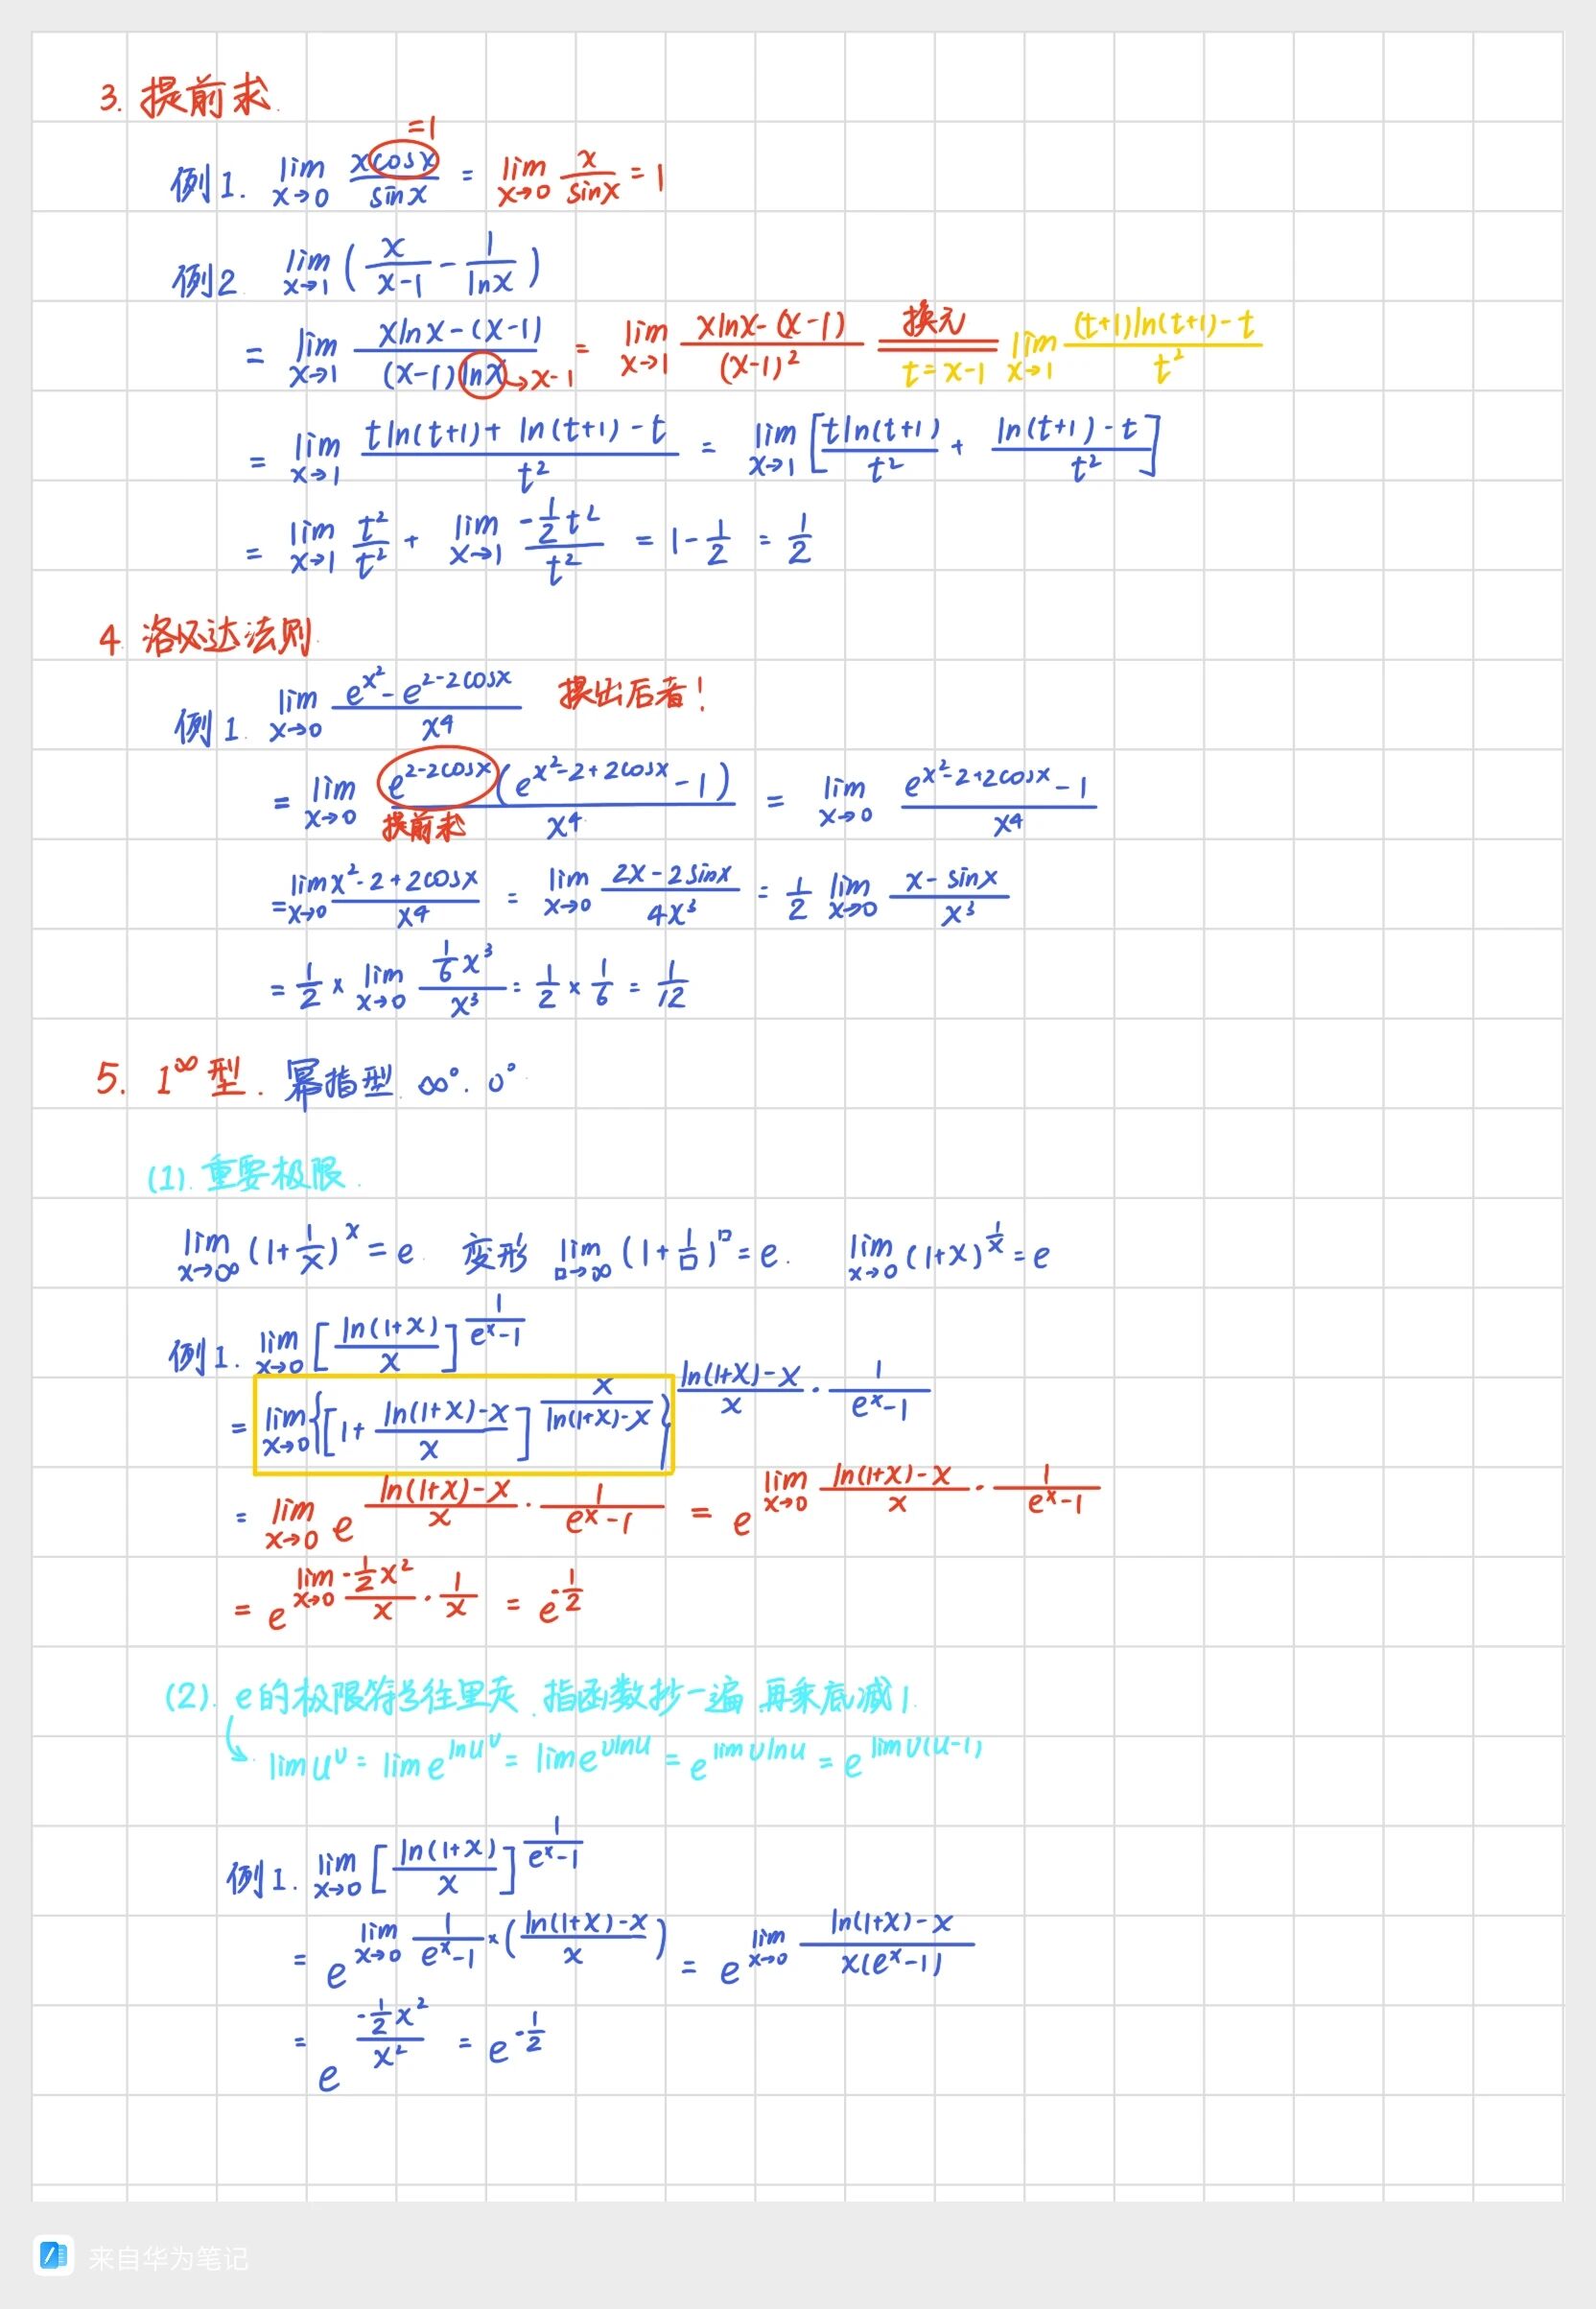 3. 提前求.
=1
例1. lim x→0 xcosx/sinx = lim x→0 x/sinx = 1
例2. lim x→1 (x/(x-1) - 1/lnx)
= lim x→1 (xlnx-(x-1))/((x-1)lnx) →x-1 = lim x→1 (xlnx-(x-1))/(x-1)² 换元 t=x-1 lim x→1 ((t+1)ln(t+1)-t)/t²
= lim x→1 (tln(t+1)+ln(t+1)-t)/t² = lim x→1 [tln(t+1)/t² + (ln(t+1)-t)/t²]
= lim x→1 t²/t² + lim x→1 (-1/2 t²)/t² = 1-1/2 = 1/2
4. 洛必达法则.
例1. lim x→0 (e^(x²) - e^(2-2cosx))/x⁴ 提出后者!
= lim x→0 e^(2-2cosx)(e^(x²-2+2cosx) -1)/x⁴ = lim x→0 (e^(x²-2+2cosx) -1)/x⁴
提前求
= lim x→0 (x²-2+2cosx)/x⁴ = lim x→0 (2x-2sinx)/4x³ = 1/2 lim x→0 (x-sinx)/x³
= 1/2 × lim x→0 (1/6 x³)/x³ = 1/2 × 1/6 = 1/12
5. 1^∞型. 幂指型. ∞⁰. 0⁰.
(1). 重要极限.
lim x→∞ (1+1/x)^x = e. 变形 lim □→∞ (1+1/□)^□ = e. lim x→0 (1+x)^(1/x) = e
例1. lim x→0 [ln(1+x)/x]^(1/(e^x-1))
= lim x→0 {[1+(ln(1+x)-x)/x]^(x/(ln(1+x)-x))}^((ln(1+x)-x)/x · 1/(e^x-1))
= lim x→0 e^((ln(1+x)-x)/x · 1/(e^x-1)) = e^(lim x→0 (ln(1+x)-x)/x · 1/(e^x-1))
= e^(lim x→0 (-1/2 x²)/x · 1/x) = e^(-1/2)
(2). e的极限符号往里走. 指函数抄一遍 再乘底减1.
lim u^v = lim e^(lnu^v) = lim e^(vlnu) = e^(lim vlnu) = e^(lim v(u-1))
例1. lim x→0 [ln(1+x)/x]^(1/(e^x-1))
= e^(lim x→0 1/(e^x-1) × ((ln(1+x)-x)/x)) = e^(lim x→0 (ln(1+x)-x)/(x(e^x-1)))
= e^((-1/2 x²)/x²) = e^(-1/2)
来自华为笔记